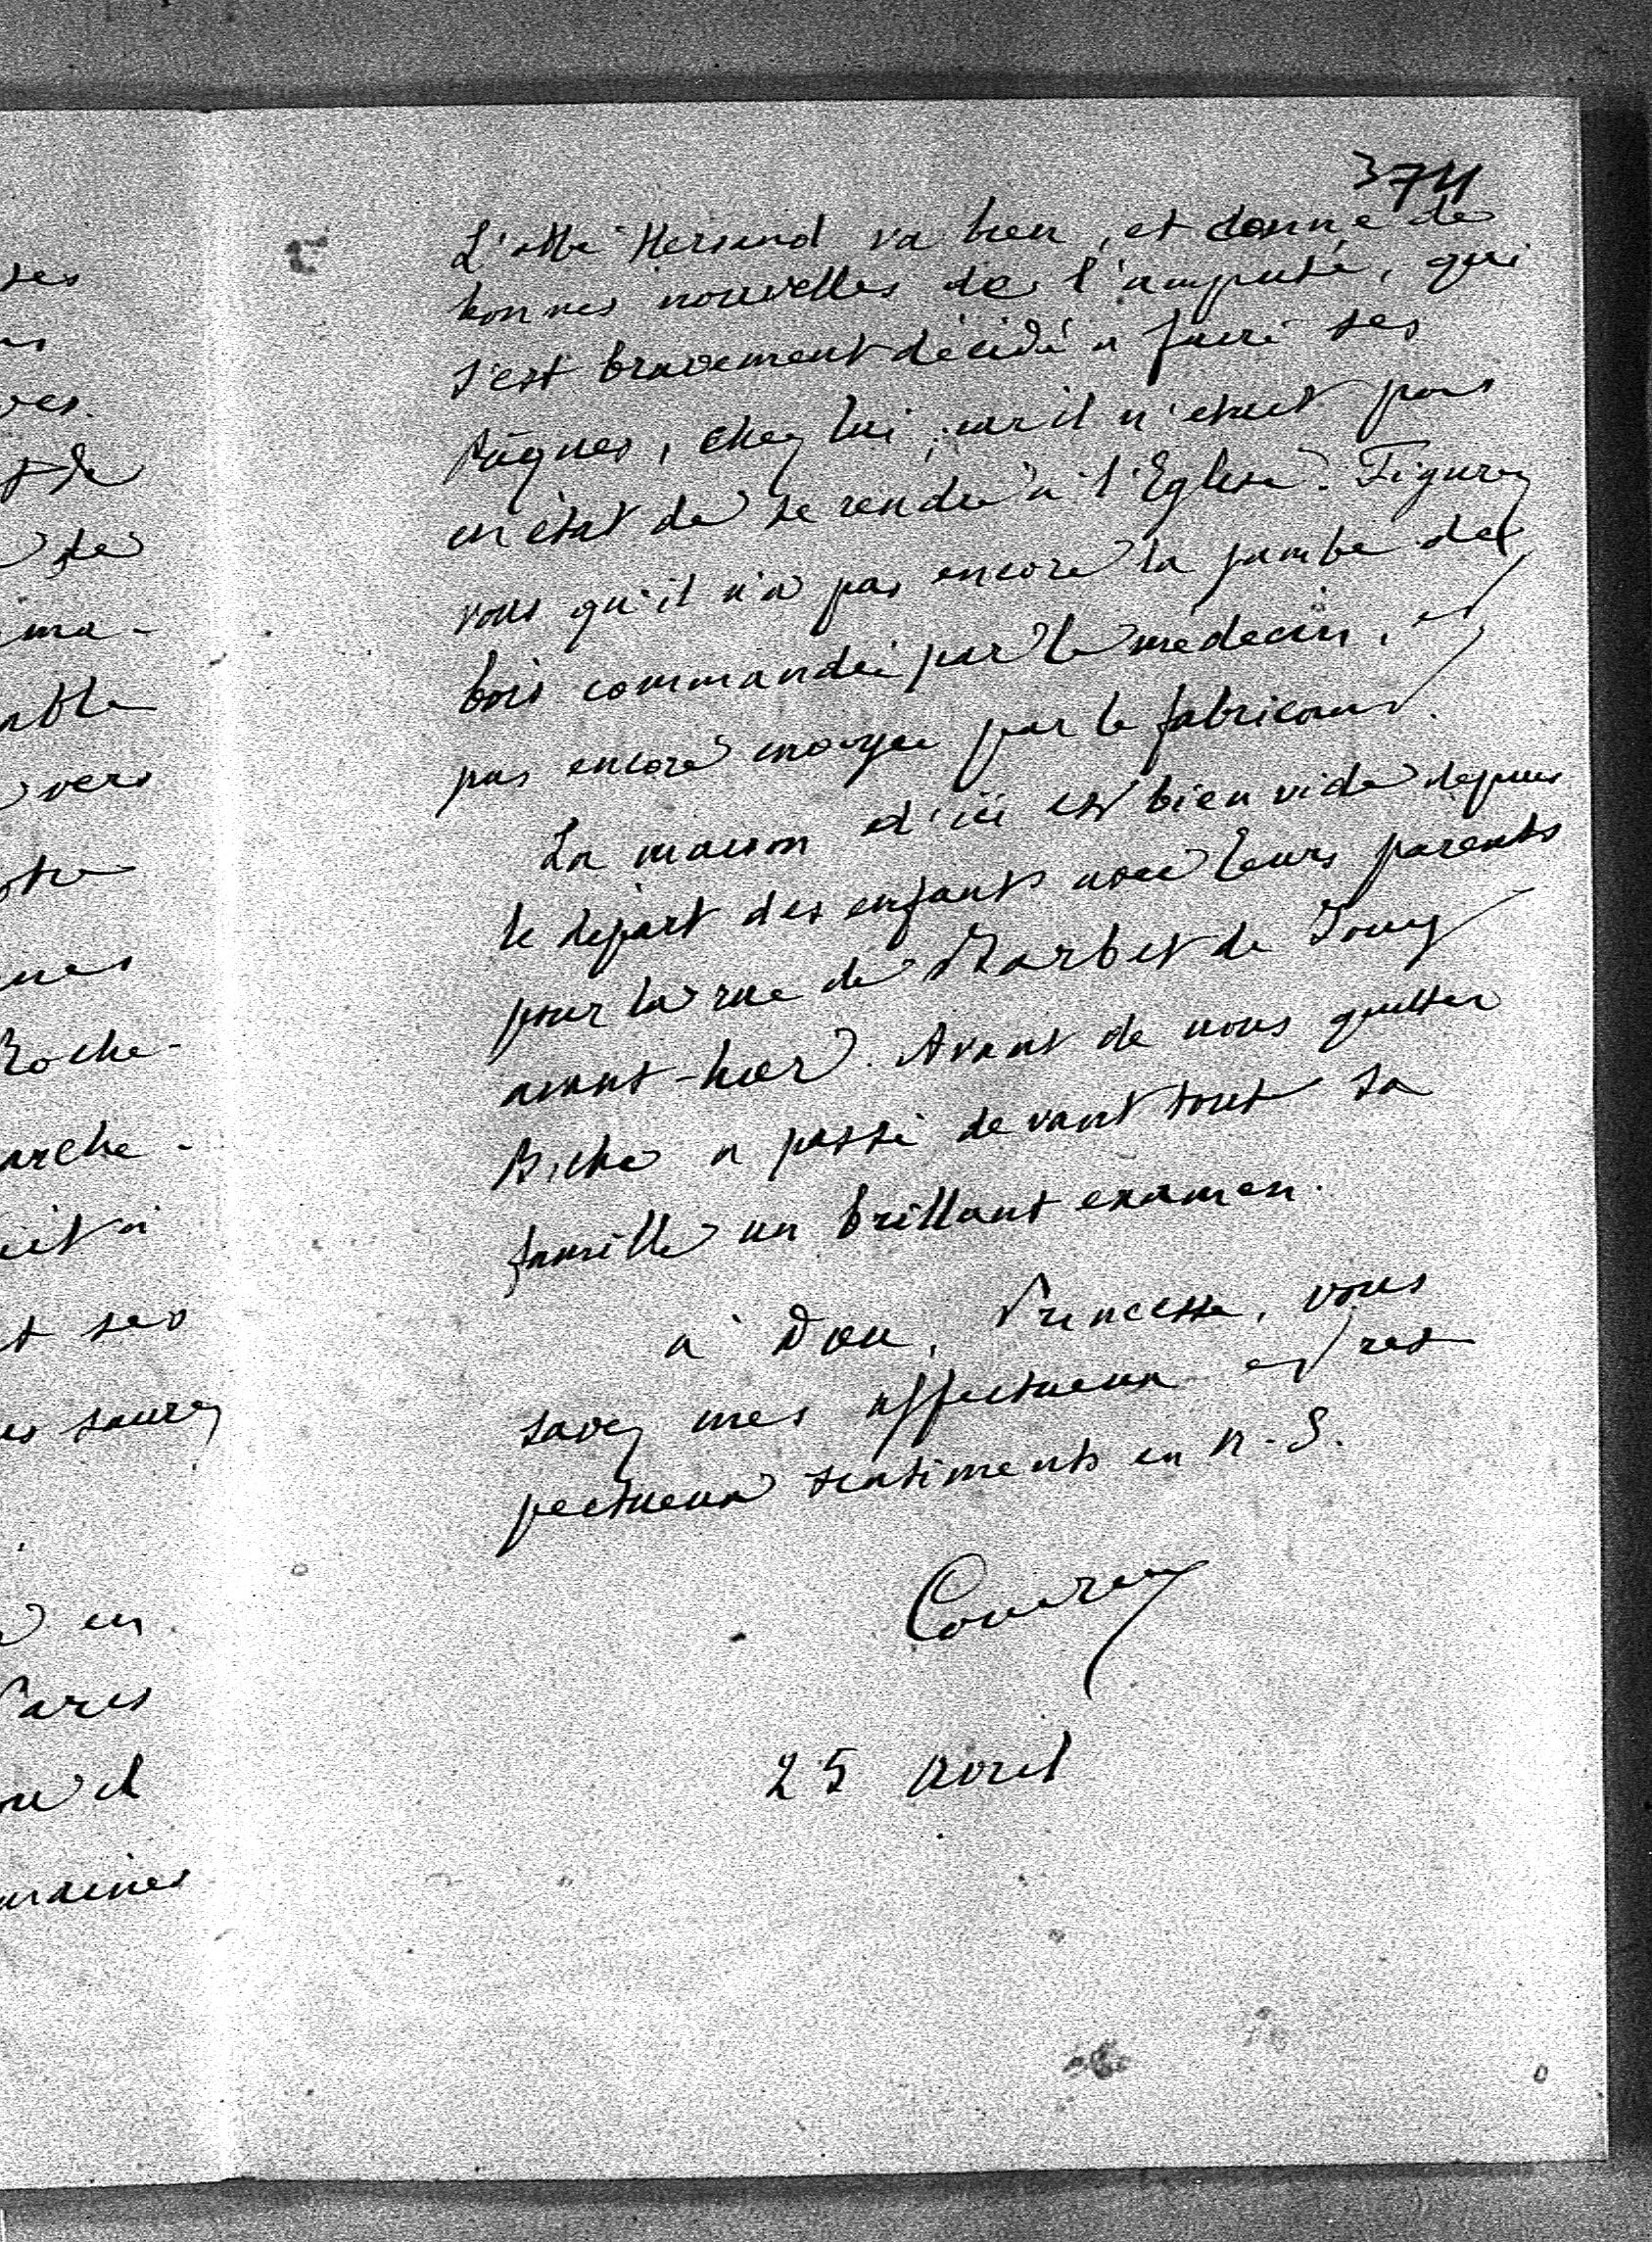 374
L'abbé Hersend va bien, et donne de
bonnes nouvelles de l'amputé, qui
s'est bravement décidé a faire ses
Pâques, chez lui, car il n'etait pas
en état de se rendre à l'Eglise. Figurez
vous qu'il n'a pas encore la jambe de
bois commandée par le medecin, et
pas encore envoyée par le fabricant.
La maison d'ici est bien vide depuis
le départ des enfants avec leurs parents
pour la rue de Barbet de Jouy
avant-hier. Avant de nous quitter
Biche a passé devant toute sa
famille un brillant examen.
a Dieu, Princesse, vous
savez mes affectueux et res
pectueux sentiments en N. S.
25 Avril
ses
ves.
de
ma-
able
vers
otre
Roche-
arche-
t ses
saurez
en
Paris
maines